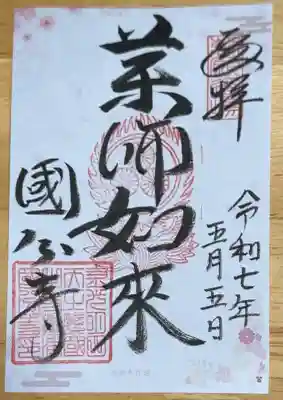 奉拝
令和七年
五月五日
薬師如來
國分寺